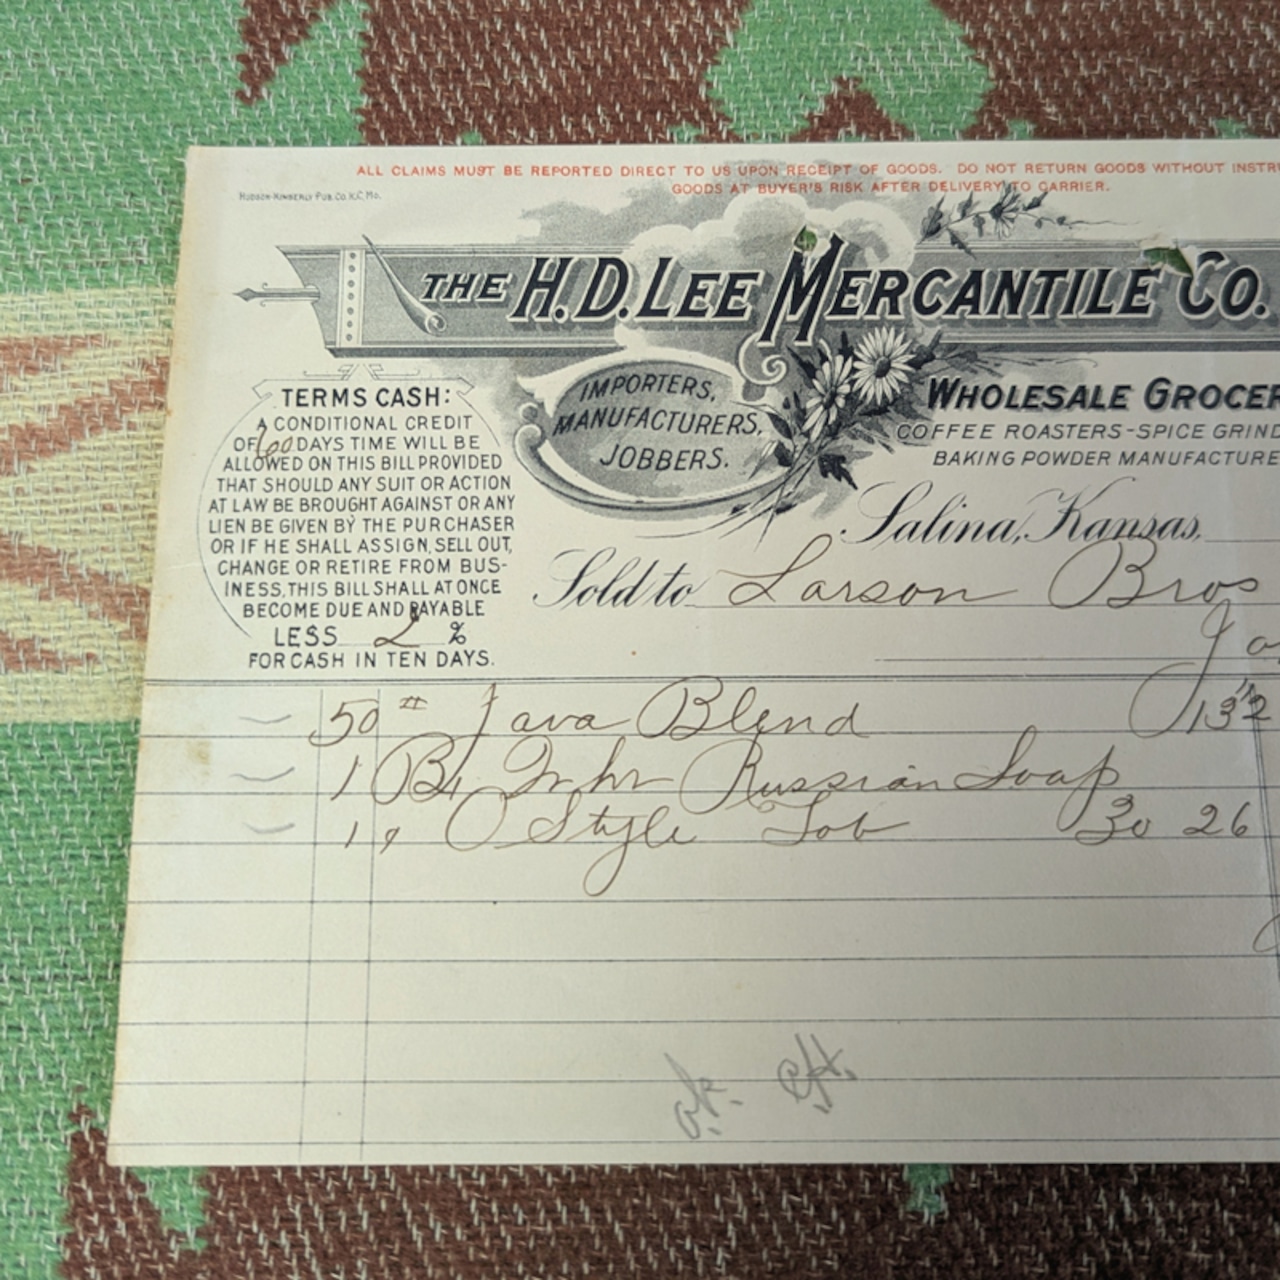 ALL CLAIMS MUST BE REPORTED DIRECT TO US UPON RECEIPT OF GOODS. DO NOT RETURN GOODS WITHOUT INSTRU
GOODS AT BUYER'S RISK AFTER DELIVERY TO CARRIER.
HUDSON-KIMBERLY PUB. CO. K.C. MO.
THE H.D. LEE MERCANTILE CO.
IMPORTERS,
MANUFACTURERS,
JOBBERS.
WHOLESALE GROCER
COFFEE ROASTERS-SPICE GRIND
BAKING POWDER MANUFACTURE
TERMS CASH:
A CONDITIONAL CREDIT
OF 60 DAYS TIME WILL BE
ALLOWED ON THIS BILL PROVIDED
THAT SHOULD ANY SUIT OR ACTION
AT LAW BE BROUGHT AGAINST OR ANY
LIEN BE GIVEN BY THE PURCHASER
OR IF HE SHALL ASSIGN, SELL OUT,
CHANGE OR RETIRE FROM BUS-
INESS, THIS BILL SHALL AT ONCE
BECOME DUE AND PAYABLE
LESS 2 %
FOR CASH IN TEN DAYS.
Salina, Kansas,
Sold to Larson Bros
50 # Java Blend 13½
1 Russian Soap
1 Style Tob 30 26
ok.